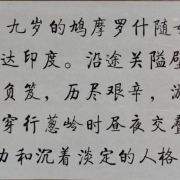 九岁的鸠摩罗什随
达印度。沿途关隘
负笈，历尽艰辛，
穿行葱岭时昼夜交
力和沉着淡定的人格